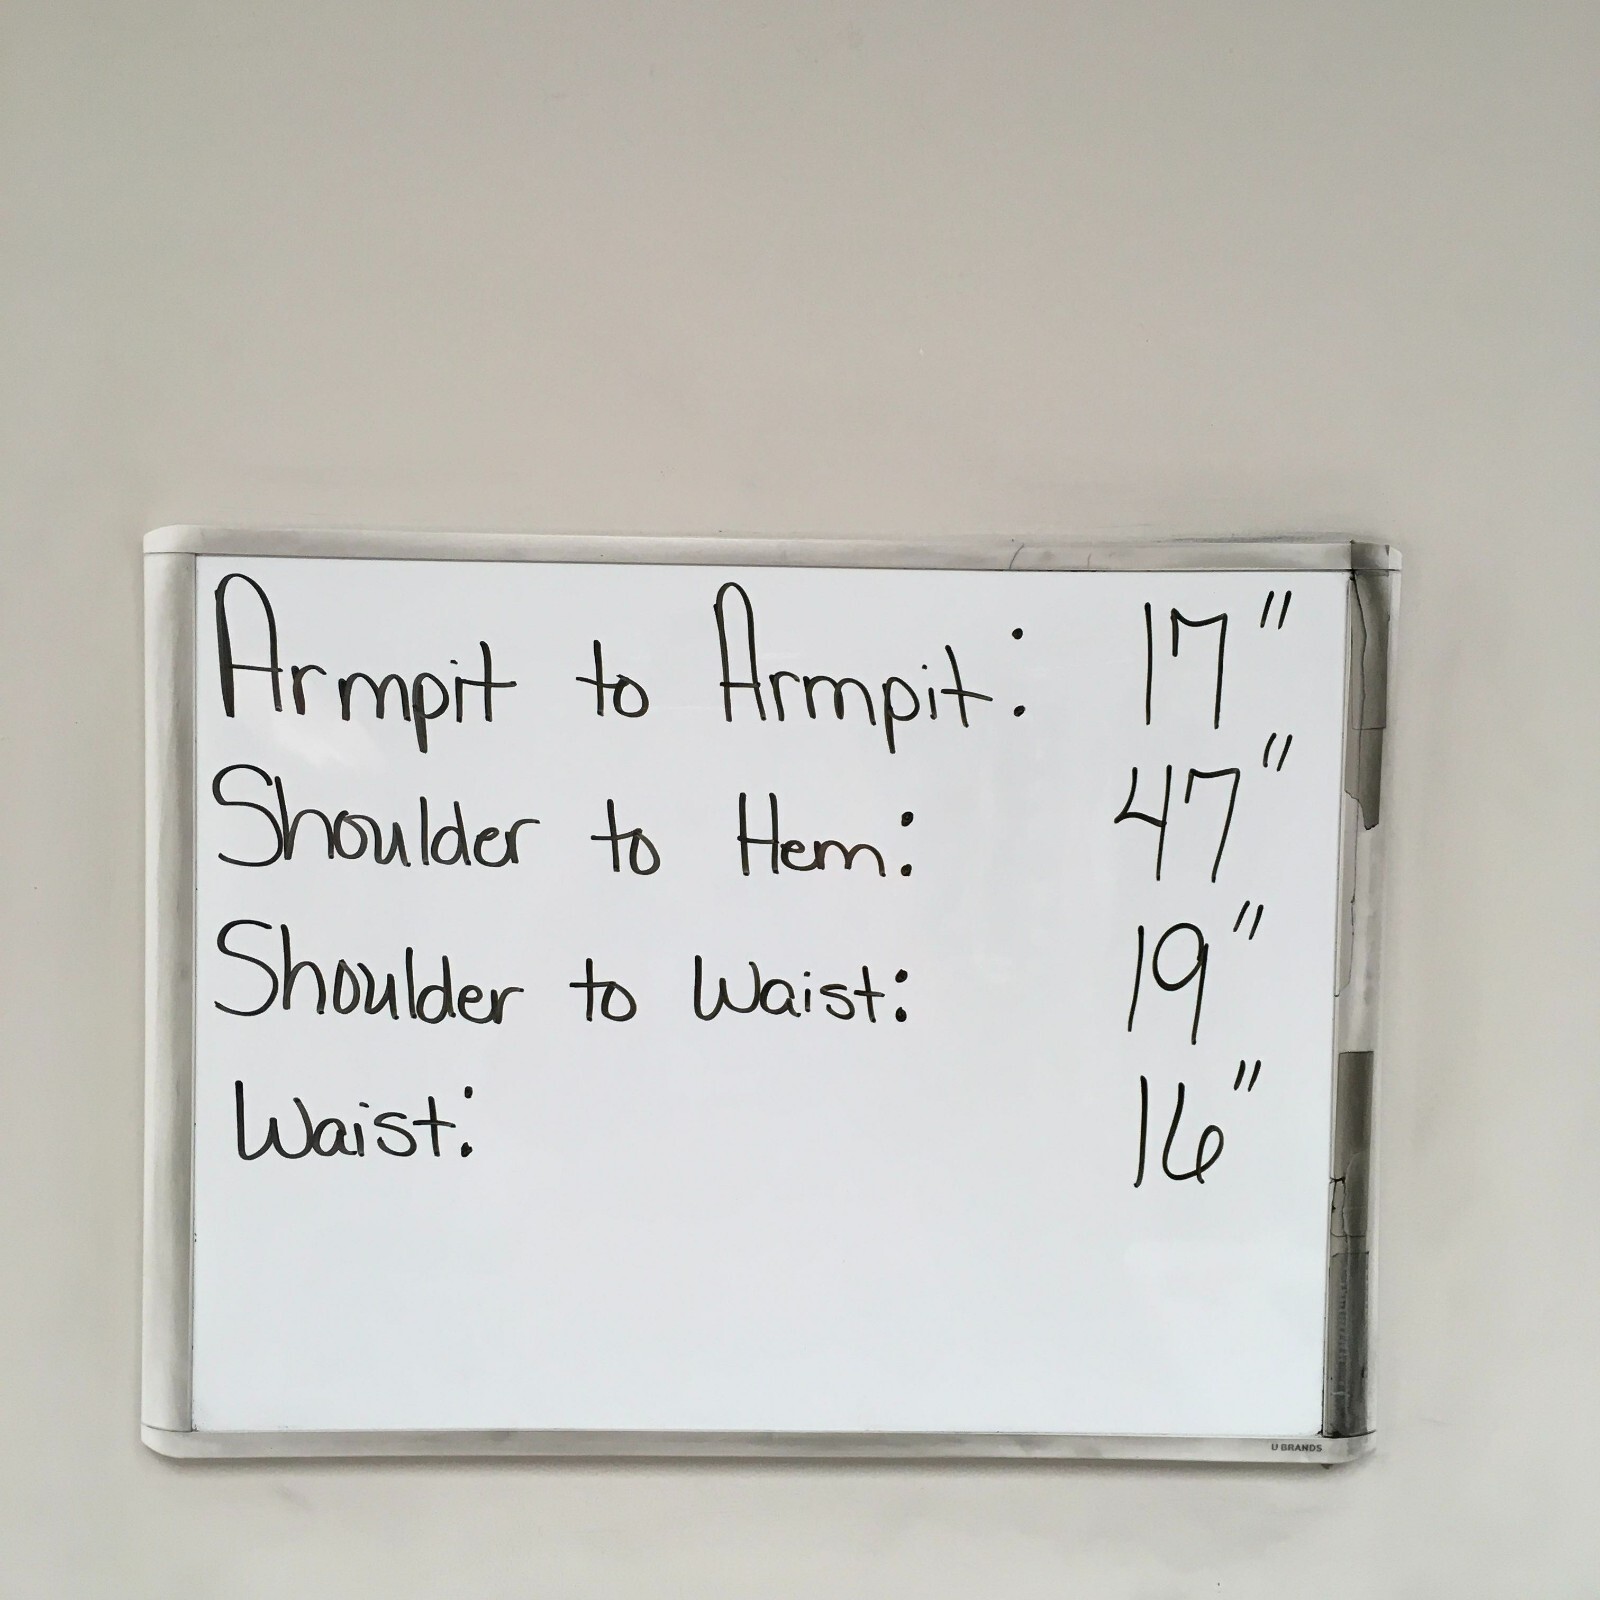 Armpit to Armpit: 17"
Shoulder to Hem: 47"
Shoulder to Waist: 19"
Waist: 16"
U BRANDS